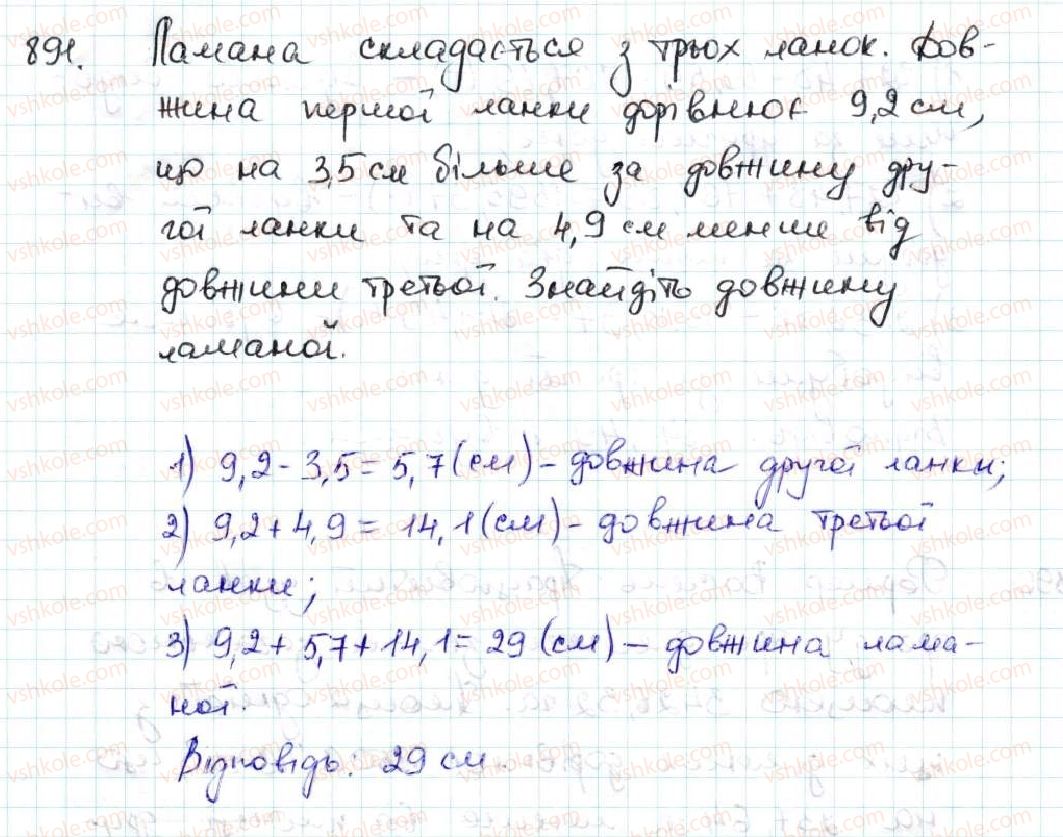 891. Ламана складається з трьох ланок. Дов-
жина першої ланки дорівнює 9,2 см,
що на 3,5 см більше за довжину дру-
гої ланки та на 4,9 см менше від
довжини третьої. Знайдіть довжину
ламаної.
1) 9,2 - 3,5 = 5,7 (см) - довжина другої ланки;
2) 9,2 + 4,9 = 14,1 (см) - довжина третьої
ланки;
3) 9,2 + 5,7 + 14,1 = 29 (см) - довжина лама-
ної.
Відповідь: 29 см.
vshkole.com